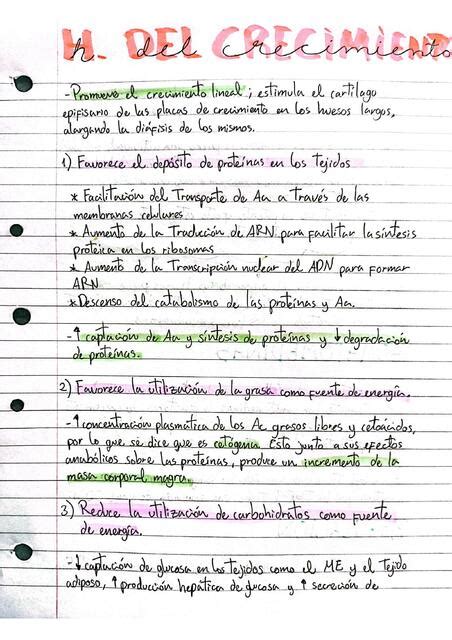 H. DEL CRECIMIENTO
h. del crecimiento
-Promueve el crecimiento lineal; estimula el cartílago
epifisario de las placas de crecimiento en los huesos largos,
alargando la diáfisis de los mismos.
1) Favorece el depósito de proteínas en los tejidos
* Facilitación del Transporte de Aa a través de las
membranas celulares
* Aumento de la Traducción de ARN para facilitar la síntesis
proteica en los ribosomas
* Aumento de la Transcripción nuclear del ADN para formar
ARN
* Descenso del catabolismo de las proteínas y Aa.
- ↑ captación de Aa y síntesis de proteínas y ↓ degradación
de proteínas.
2) Favorece la utilización de la grasa como fuente de energía.
- ↑ concentración plasmática de los Ac grasos libres y cetoácidos,
por lo que se dice que es cetógena. Esto junto a sus efectos
anabólicos sobre las proteínas, produce un incremento de la
masa corporal magra.
3) Reduce la utilización de carbohidratos como fuente
de energía.
- ↓ captación de glucosa en los tejidos como el ME y el Tejido
adiposo, ↑ producción hepática de glucosa y ↑ secreción de